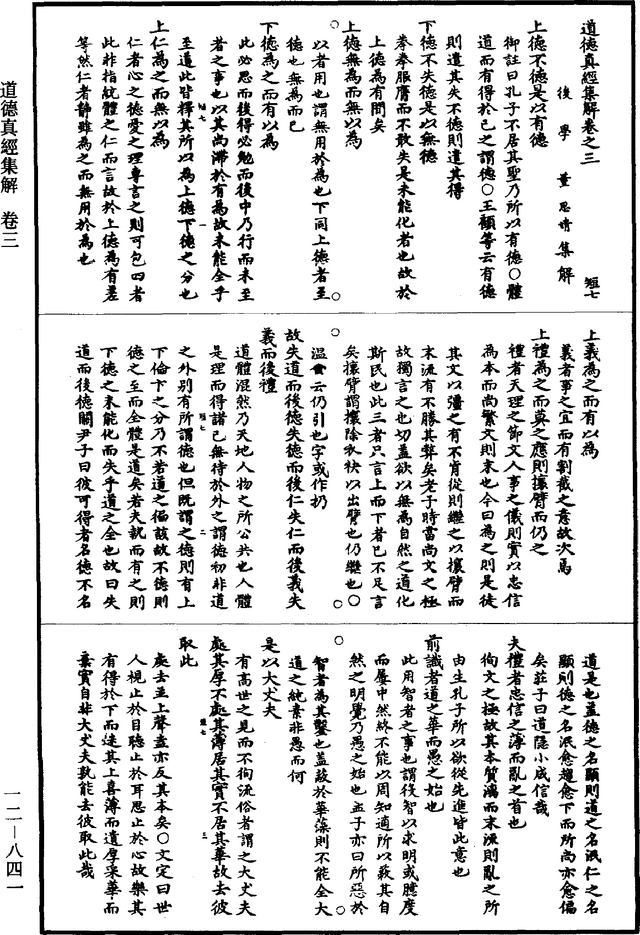 道德真經集解卷之三 短七
後學董思靖集解
上德不德是以有德
御註曰孔子不居其聖乃所以有德○體
道而有得於己之謂德○王顧等云有德
則遣其失不德則遣其得
下德不失德是以無德
拳拳服膺而不敢失是未能化者也故於
上德為有間矣
上德無為而無以為
以者用也謂無用於為也下同上德者至
德也無為而已
下德為之而有以為
此必思而後得必勉而後中乃行而未至
者之事也以其尚滯於有為故未能全乎
至道此皆釋其所以為上德下德之分也
上仁為之而無以為
仁者心之德愛之理專言之則可包四者
此非指統體之仁而言故於上德為有差
等然仁者靜雖為之而無用於為也
短七 一
上義為之而有以為
義者事之宜而有割截之意故次焉
上禮為之而莫之應則攘臂而仍之
禮者天理之節文人事之儀則實以忠信
為本而尚繁文則末也今曰為之則是徒
其文以彊之有不肯從則繼之以攘臂而
末流有不勝其弊矣老子時當尚文之極
故獨言之也切蓋欲以無為自然之道化
斯民也此三者只言上而下者已不足言
矣攘臂謂攘除衣袂以出臂也仍繼也○
溫公云仍引也字或作扔
故失道而後德失德而後仁失仁而後義失
義而後禮
道體混然乃天地人物之所公共也人體
是理而得諸己無待於外之謂德初非道
之外別有所謂德也但既謂之德則有上
下倫卞之分乃不若道之徧該故不德則
德之至而全體是道矣若夫執而有之則
下德之未能化而失乎道之全也故曰失
道而後德關尹子曰彼可得者名德不名
短七 二
道是也蓋德之名顯則道之名泯仁之名
顯則德之名泯愈趨愈下而所尚亦愈偏
矣莊子曰道隱小成信哉
夫禮者忠信之薄而亂之首也
徇文之極故其本質漓而末流則亂之所
由生孔子所以欲從先進皆此意也
前識者道之華而愚之始也
此用智者之事也謂役智以求明或臆度
而屢中然終不能以周知適所以蔽其自
然之明覺乃愚之始也孟子亦曰所惡於
智者為其鑿也蓋蔽於華藻則不能全大
道之純素非愚而何
是以大丈夫
有高世之見而不徇流俗者謂之大丈夫
處其厚不處其薄居其實不居其華故去彼
取此
處去並上聲蓋亦反其本矣○文定曰世
人視止於目聽止於耳思止於心故樂其
有得於下而迷其上喜薄而遺厚采華而
棄實自非大丈夫孰能去彼取此哉
短七 三
道德真經集解 卷三
一二—八四一